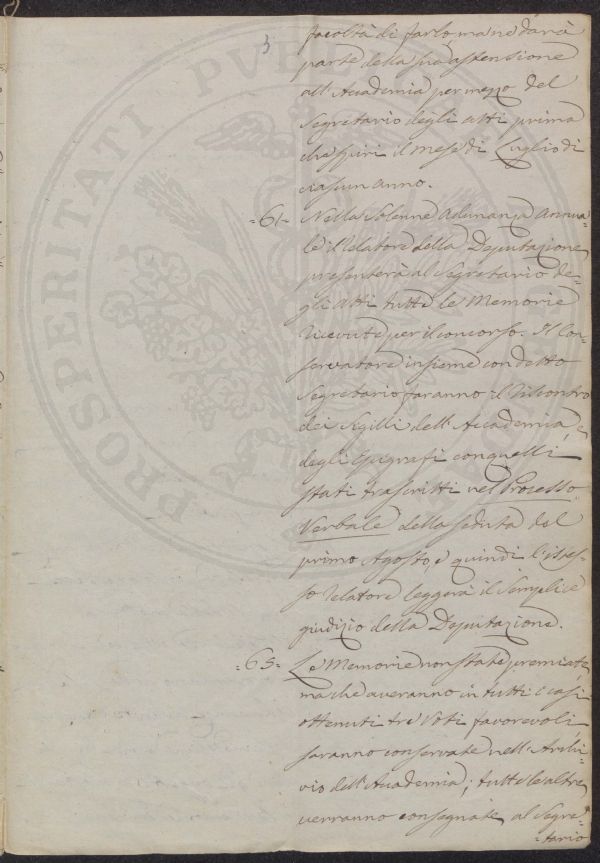 3
facoltà di farlo, ma ne darà
parte della sua astensione
all'Accademia per mezzo del
Segretario degli atti prima
che spiri il mese di Luglio di
ciascun anno.
-61- Nella Solenne Adunanza Annua-
le il Relatore della Deputazione
presenterà al Segretario de-
gli Atti tutte le Memorie
ricevute per il concorso. Il Con-
servatore insieme con detto
Segretario faranno il riscontro
dei Sigilli dell'Accademia, e
degli Epigrafi con quelli
stati trascritti nel Processo
Verbale della seduta del
primo Agosto, e quindi l'istes-
so Relatore leggerà il semplice
giudizio della Deputazione.
-63- Le Memorie non state premiate,
ma che averanno in tutti i casi
ottenuti tre Voti favorevoli
saranno conservate nell'Archi-
vio dell'Accademia; tutte le altre
verranno consegnate al Segre-
-tario
PROSPERITATI PUBLICAE